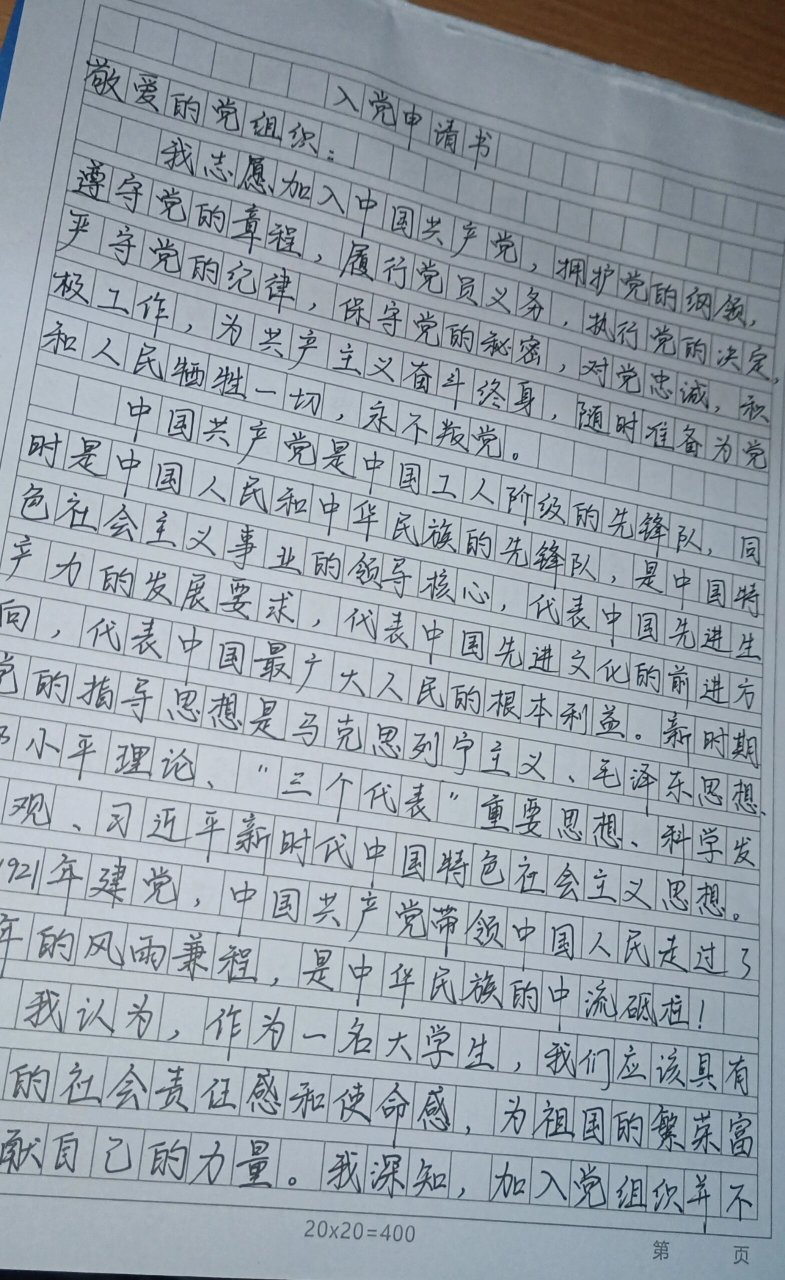 入党申请书
敬爱的党组织：
我志愿加入中国共产党，拥护党的纲领，
遵守党的章程，履行党员义务，执行党的决定，
严守党的纪律，保守党的秘密，对党忠诚，积
极工作，为共产主义奋斗终身，随时准备为党
和人民牺牲一切，永不叛党。
中国共产党是中国工人阶级的先锋队，同
时是中国人民和中华民族的先锋队，是中国特
色社会主义事业的领导核心，代表中国先进生
产力的发展要求，代表中国先进文化的前进方
向，代表中国最广大人民的根本利益。新时期
党的指导思想是马克思列宁主义、毛泽东思想、
小平理论、“三个代表”重要思想、科学发
观、习近平新时代中国特色社会主义思想。
1921年建党，中国共产党带领中国人民走过了
年的风雨兼程，是中华民族的中流砥柱！
我认为，作为一名大学生，我们应该具有
的社会责任感和使命感，为祖国的繁荣富
献自己的力量。我深知，加入党组织并不
20x20=400
第 页